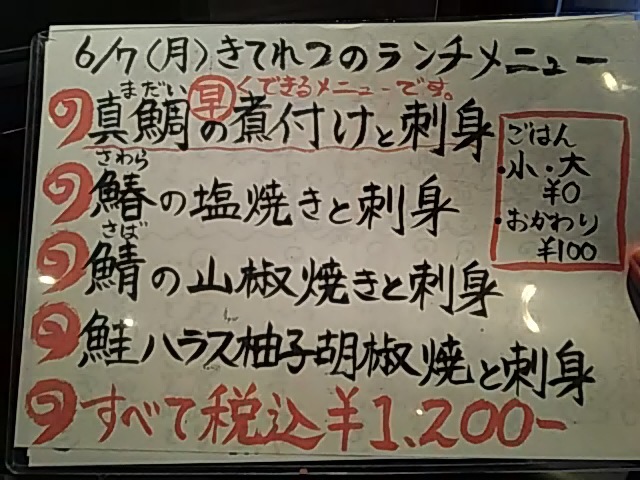 6/7(月)きてれつのランチメニュー
まだい 早くできるメニューです。
真鯛の煮付けと刺身
さわら
鰆の塩焼きと刺身
さば
鯖の山椒焼きと刺身
鮭ハラス柚子胡椒焼と刺身
すべて税込¥1,200-
ごはん
・小・大
¥0
・おかわり
¥100